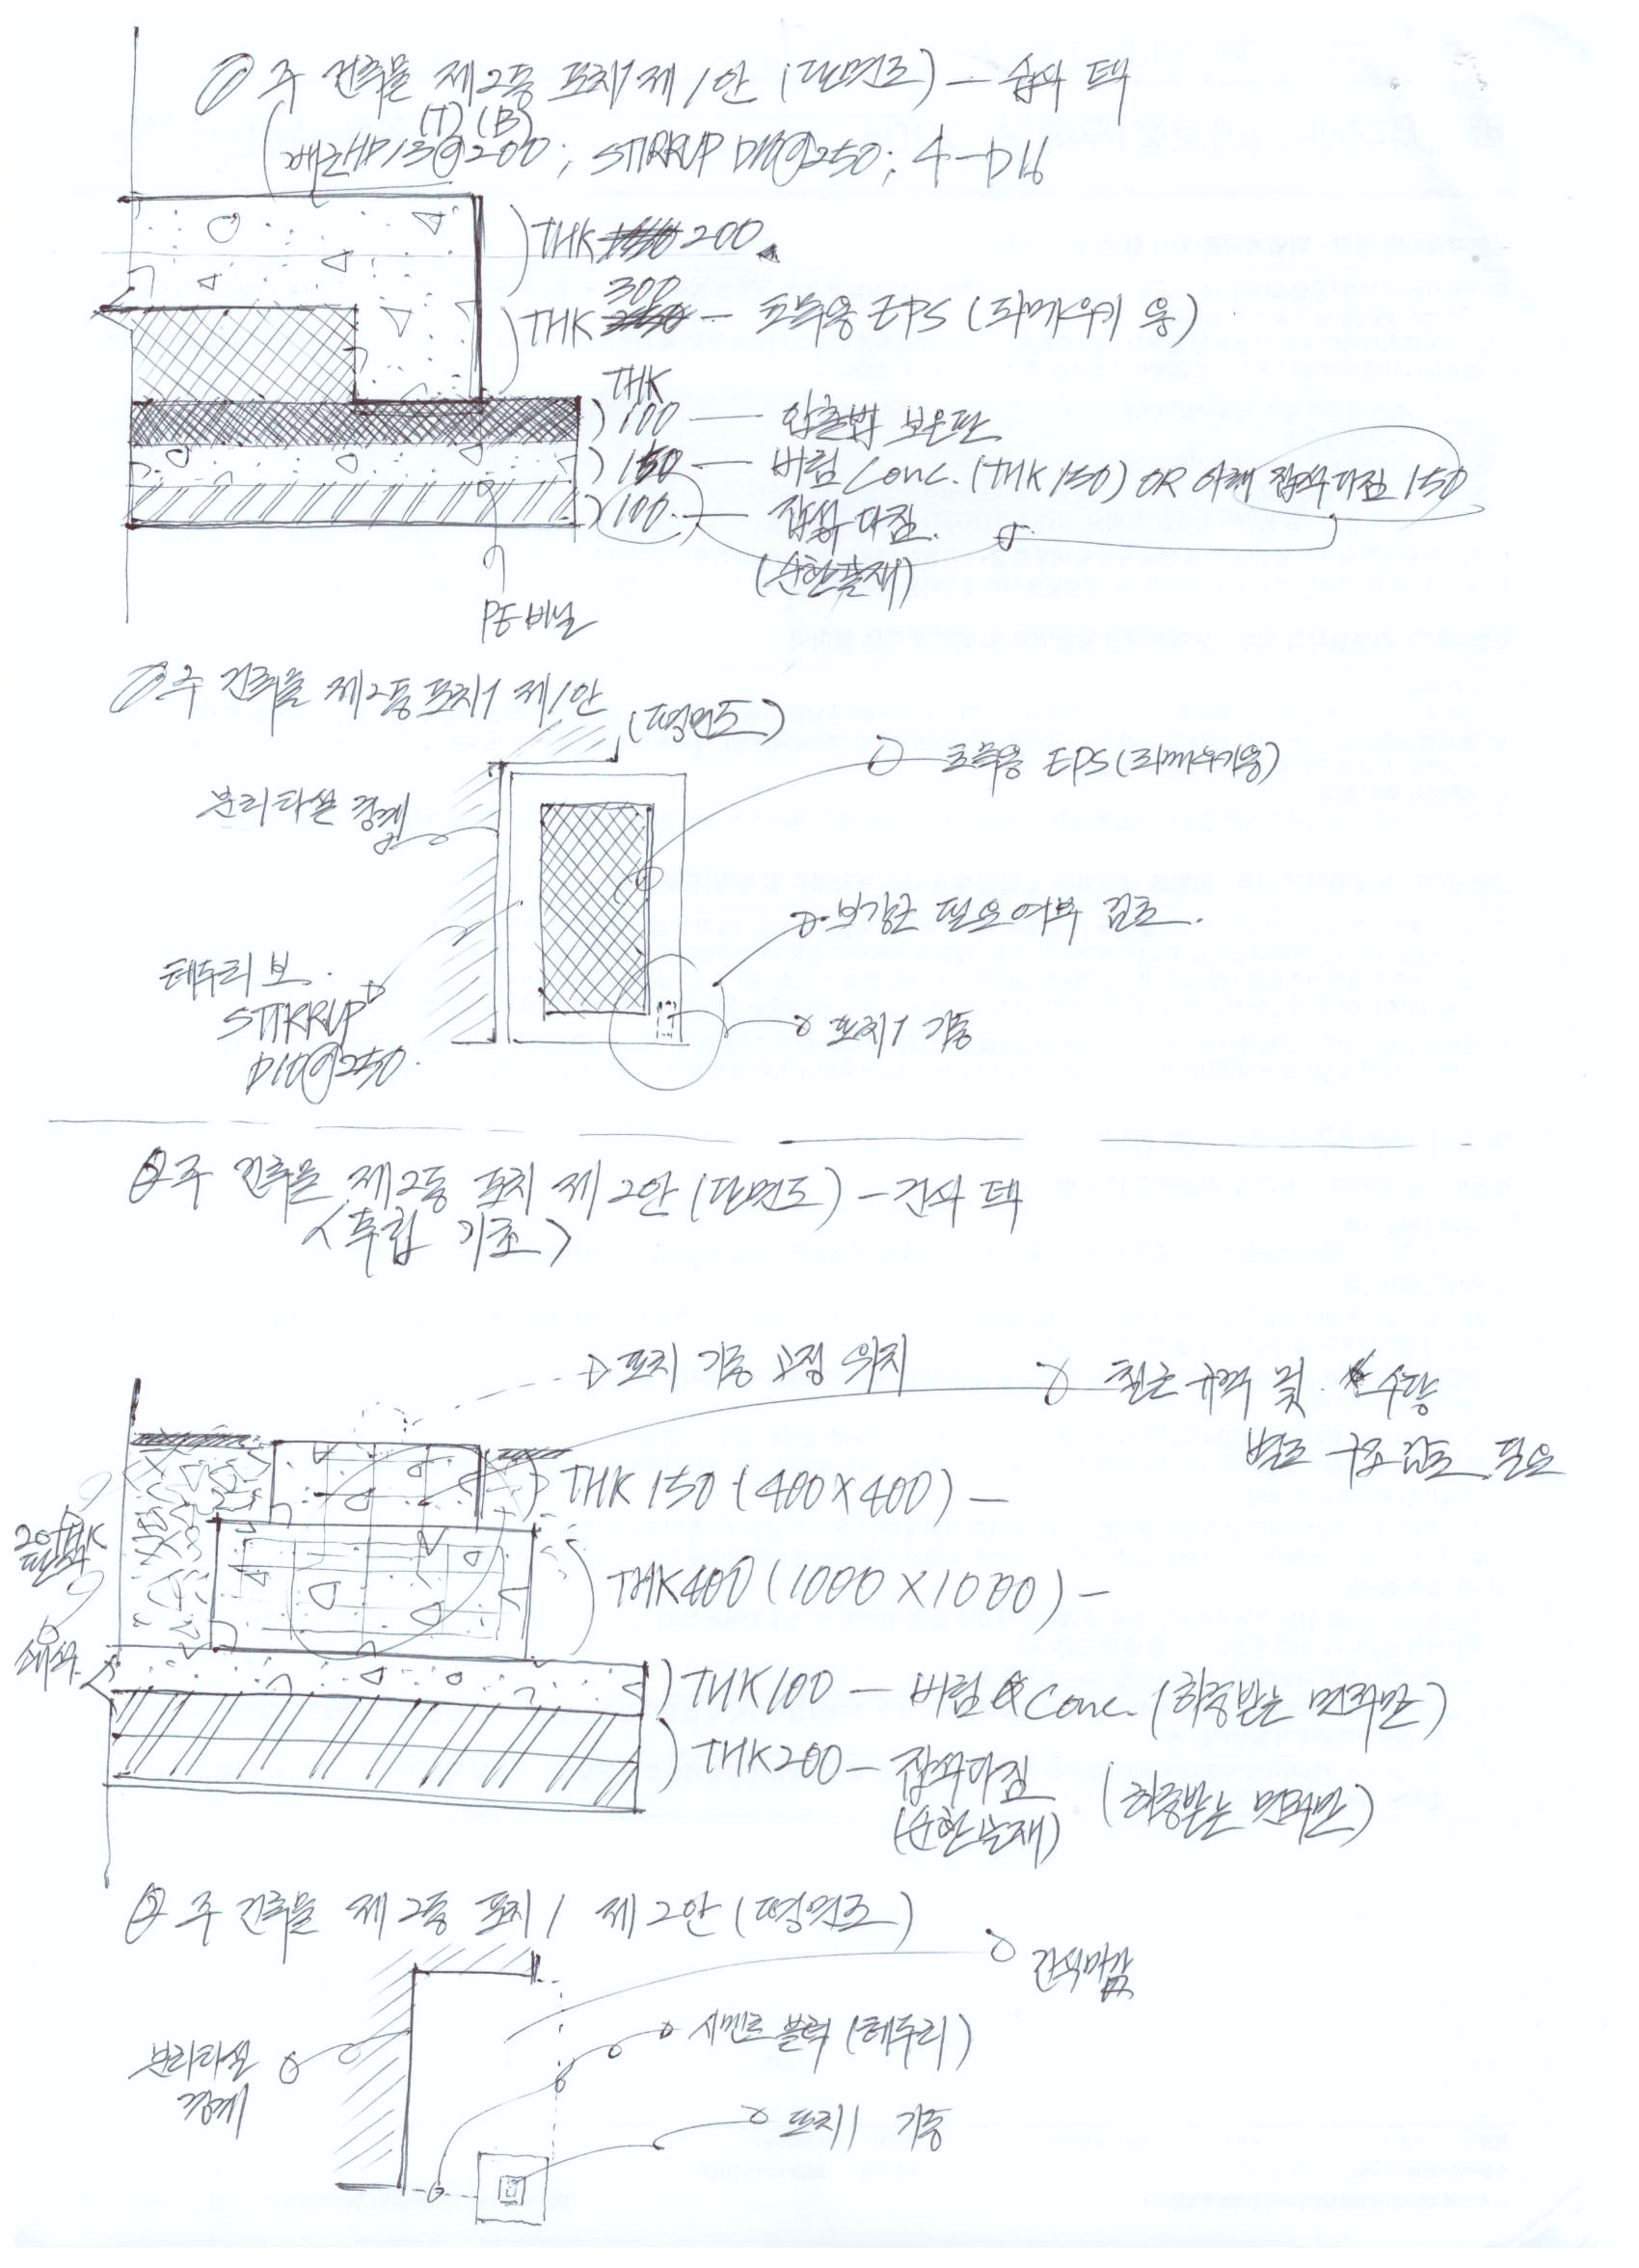 ① 주 건축물 제2동 포치1 제1안 (단면도) - 습식 덱
(T) (B)
(배근HD13@200; STIRRUP D10@250; 4-D16
THK 200
300
THK - 토목용 EPS (되메우기 용)
THK
100 - 압출법 보온판
150 - 버림 Conc. (THK 150) OR 아래 잡석다짐 150
100 - 잡석 다짐.
(순환골재)
PE비닐
① 주 건축물 제2동 포치1 제1안 (평면도)
토목용 EPS (되메우기용)
분리타설 경계
보강근 필요여부 검토.
테두리 보.
STIRRUP
D10@250.
포치1 기둥
② 주 건축물 제2동 포치 제2안 (단면도) - 건식 덱
<독립 기초>
포치 기둥 고정 위치
철근 규격 및 수량
별도 구조검토 필요
THK 150 (400×400) -
20THK
THK400 (1000×1000) -
쇄석
THK100 - 버림 Conc. (하중받는 면적만)
THK200 - 잡석다짐 (하중받는 면적만)
(순환골재)
② 주 건축물 제2동 포치1 제2안 (평면도)
건식마감
시멘트 블럭 (테두리)
분리타설
경계
포치1 기둥